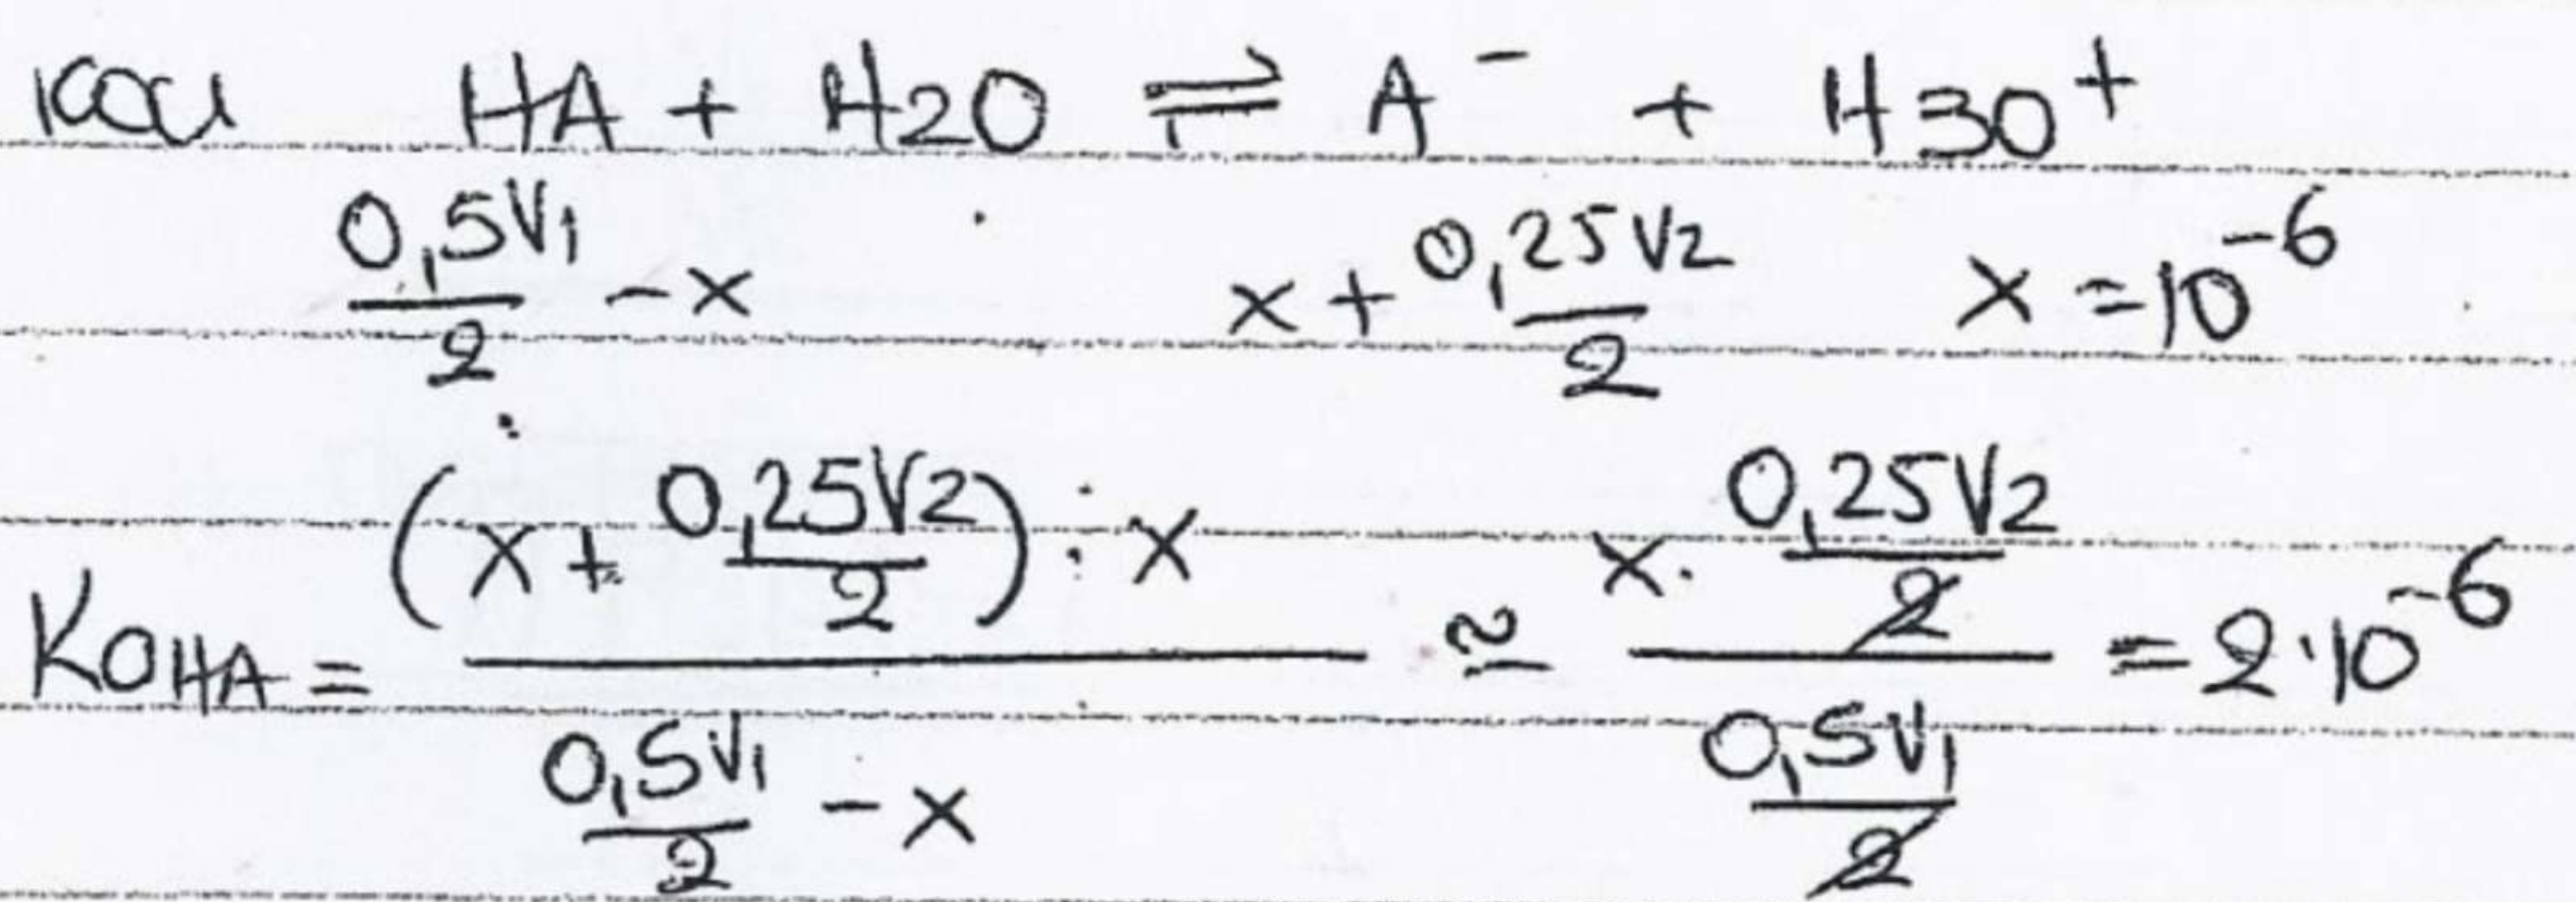 και HA + H2O ⇌ A⁻ + H3O⁺
0,5V1/2 - x x + 0,25V2/2 x = 10⁻⁶
KαHA = (x + 0,25V2/2) · x / (0,5V1/2 - x) ≃ x · 0,25V2/2 / (0,5V1/2) = 2·10⁻⁶